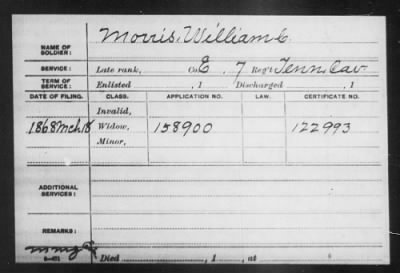 NAME OF SOLDIER: Morris, William C.
SERVICE: Late rank, Co. E, 7 Reg't Tenn. Cav
TERM OF SERVICE: Enlisted , 1 Discharged , 1
DATE OF FILING. CLASS. APPLICATION NO. LAW. CERTIFICATE NO.
Invalid,
1868 Mch 18 Widow, 158900 122993
Minor,
ADDITIONAL SERVICES:
REMARKS:
Died , 1 , at